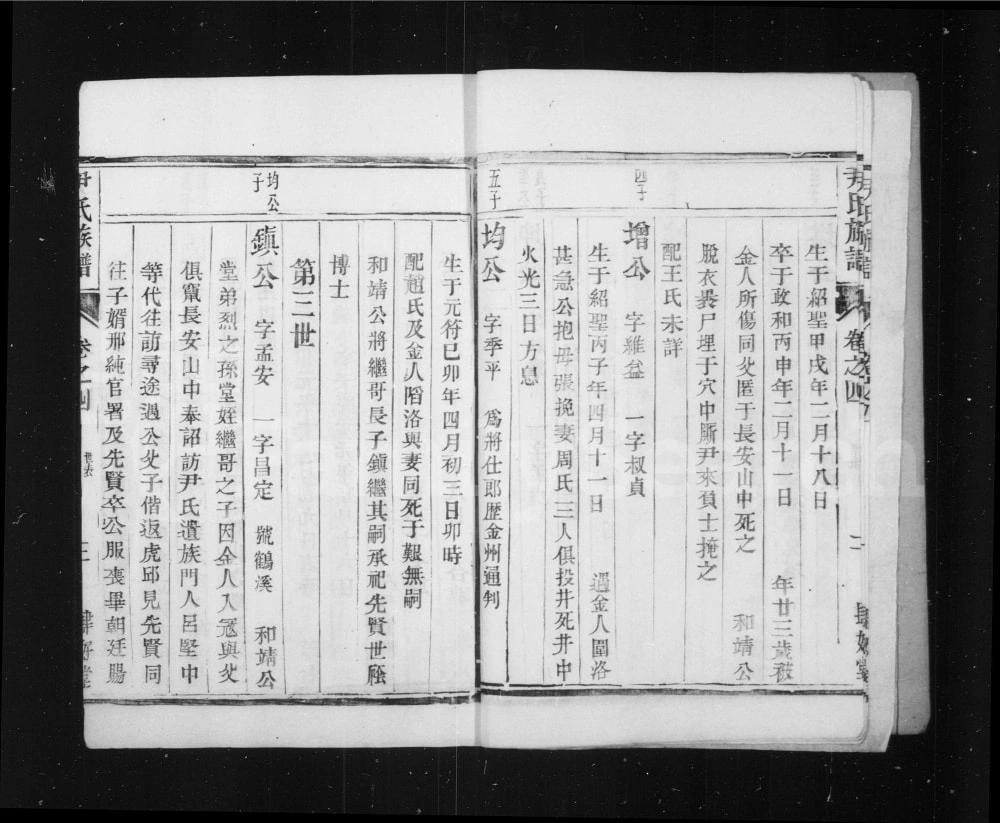 尹氏族譜 卷之四 二
生于紹聖甲戌年二月十八日
卒于政和丙申年二月十一日 年廿三歲被
金人所傷同父匿于長安山中死之 和靖公
脫衣裹尸埋于穴中斸尹來負士掩之
配王氏未詳
四子
增公 字維益 一字叔貞
生于紹聖丙子年四月十一日 遇金人圍洛
甚急公抱母張挽妻周氏三人俱投井死井中
火光三日方息
五子
均公 字季平 爲將仕郎歷金州通判
生于元符巳卯年四月初三日卯時
配趙氏及金人陷洛與妻同死于難無嗣
和靖公將繼哥長子鎮繼其嗣承祀先賢世廕
博士
第三世
均公子
鎮公 字孟安 一字昌定 號鶴溪 和靖公
堂弟烈之孫堂姪繼哥之子因金人入寇與父
俱竄長安山中奉詔訪尹氏遺族門人呂堅中
等代往訪尋途遇公父子偕返虎邱見先賢同
往子婿邢純官署及先賢卒公服喪畢朝廷賜
尹氏族譜 卷之四 世表 三 肆好堂